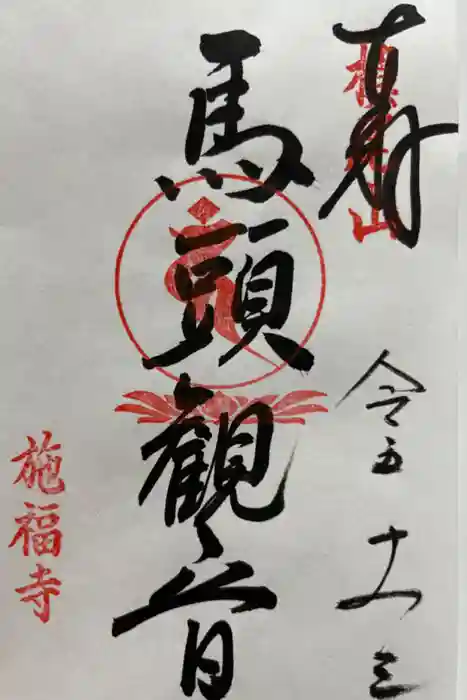 奉拝
槇尾山
馬頭観音
令五
十
三
施福寺